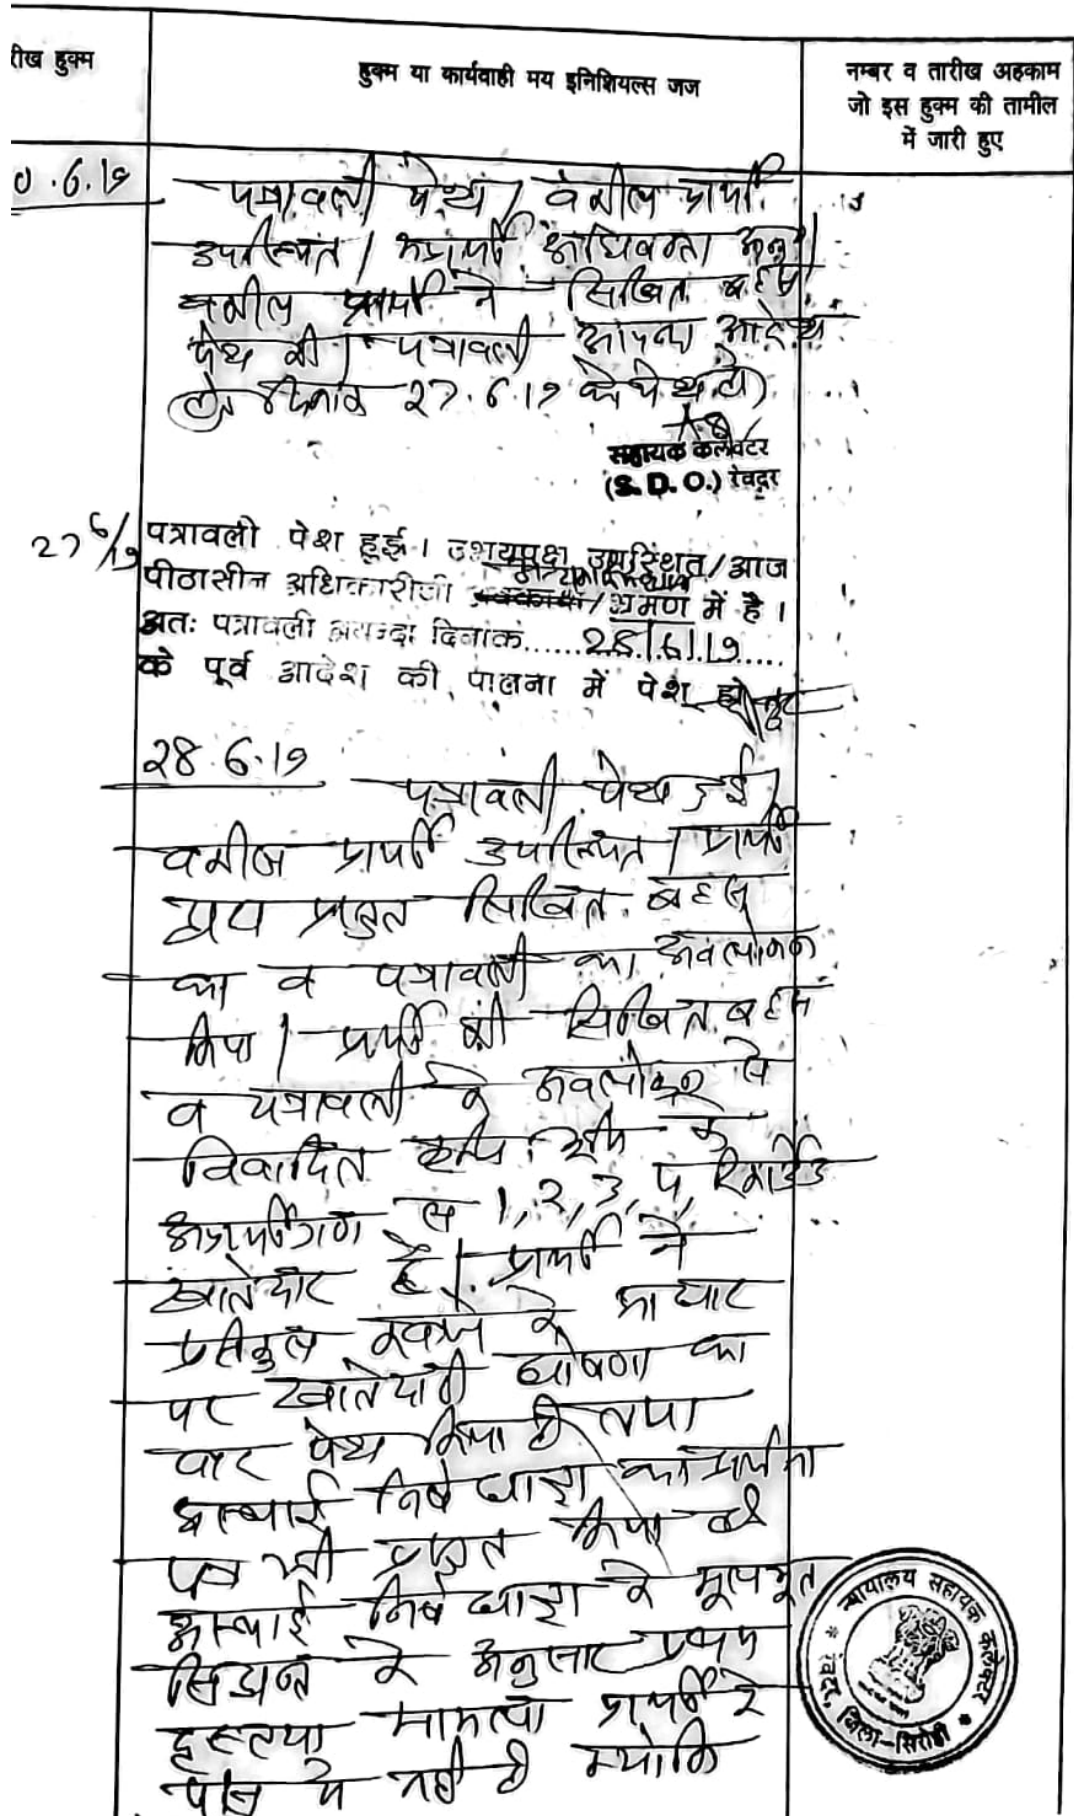 रीख हुक्म
हुक्म या कार्यवाही मय इनिशियल्स जज
नम्बर व तारीख अहकाम
जो इस हुक्म की तामील
में जारी हुए
0.6.19
पत्रावली पेश / वकील प्रार्थी
उपस्थित / अप्रार्थी अधिवक्ता अनु।
वकील प्रार्थी ने लिखित बहस
पेश की। पत्रावली आयन्दा आदेश
हेतु दिनांक 27.6.19 को पेश हो।
सहायक कलेक्टर
(S. D. O.) रेवदर
27 6/19
पत्रावली पेश हुई। उभयपक्ष उपस्थित/आज
पीठासीन अधिकारीजी अवकाश/भ्रमण में है।
अतः पत्रावली आयन्दा दिनांक......28/6/19.....
के पूर्व आदेश की पालना में पेश हो
28.6.19
पत्रावली पेश हुई।
वकील प्रार्थी उपस्थित / प्रार्थी
द्वारा प्रस्तुत लिखित बहस
का व पत्रावली का अवलोकन
किया / प्रार्थी की लिखित बहस
व पत्रावली के अवलोकन से
विवादित कृषि भूमि के
अप्रार्थीगण स 1,2,3,4, रिकॉर्डेड
खातेदार है। प्रार्थी ने
प्रतिकूल कब्जे के आधार
पर खातेदारी घोषणा का
वाद पेश किया है तथा
अस्थाई निषेधाज्ञा का प्रार्थना
पत्र भी प्रस्तुत किया है
अस्थाई निषेधाज्ञा के मूलभूत
सिद्धान्त के अनुसार प्रथम
दृष्टया मामला प्रार्थी के
पक्ष में नही है क्योकि
न्यायालय सहायक कलेक्टर
रेवदर, जिला-सिरोही